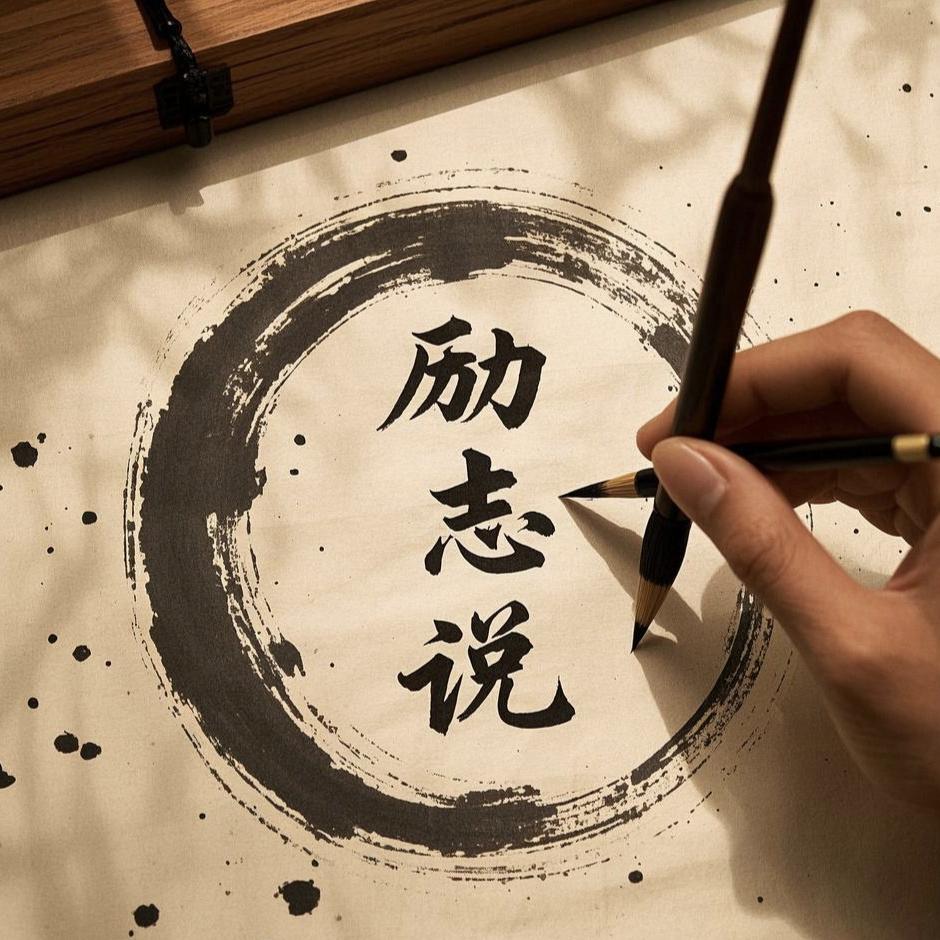 励
志
说